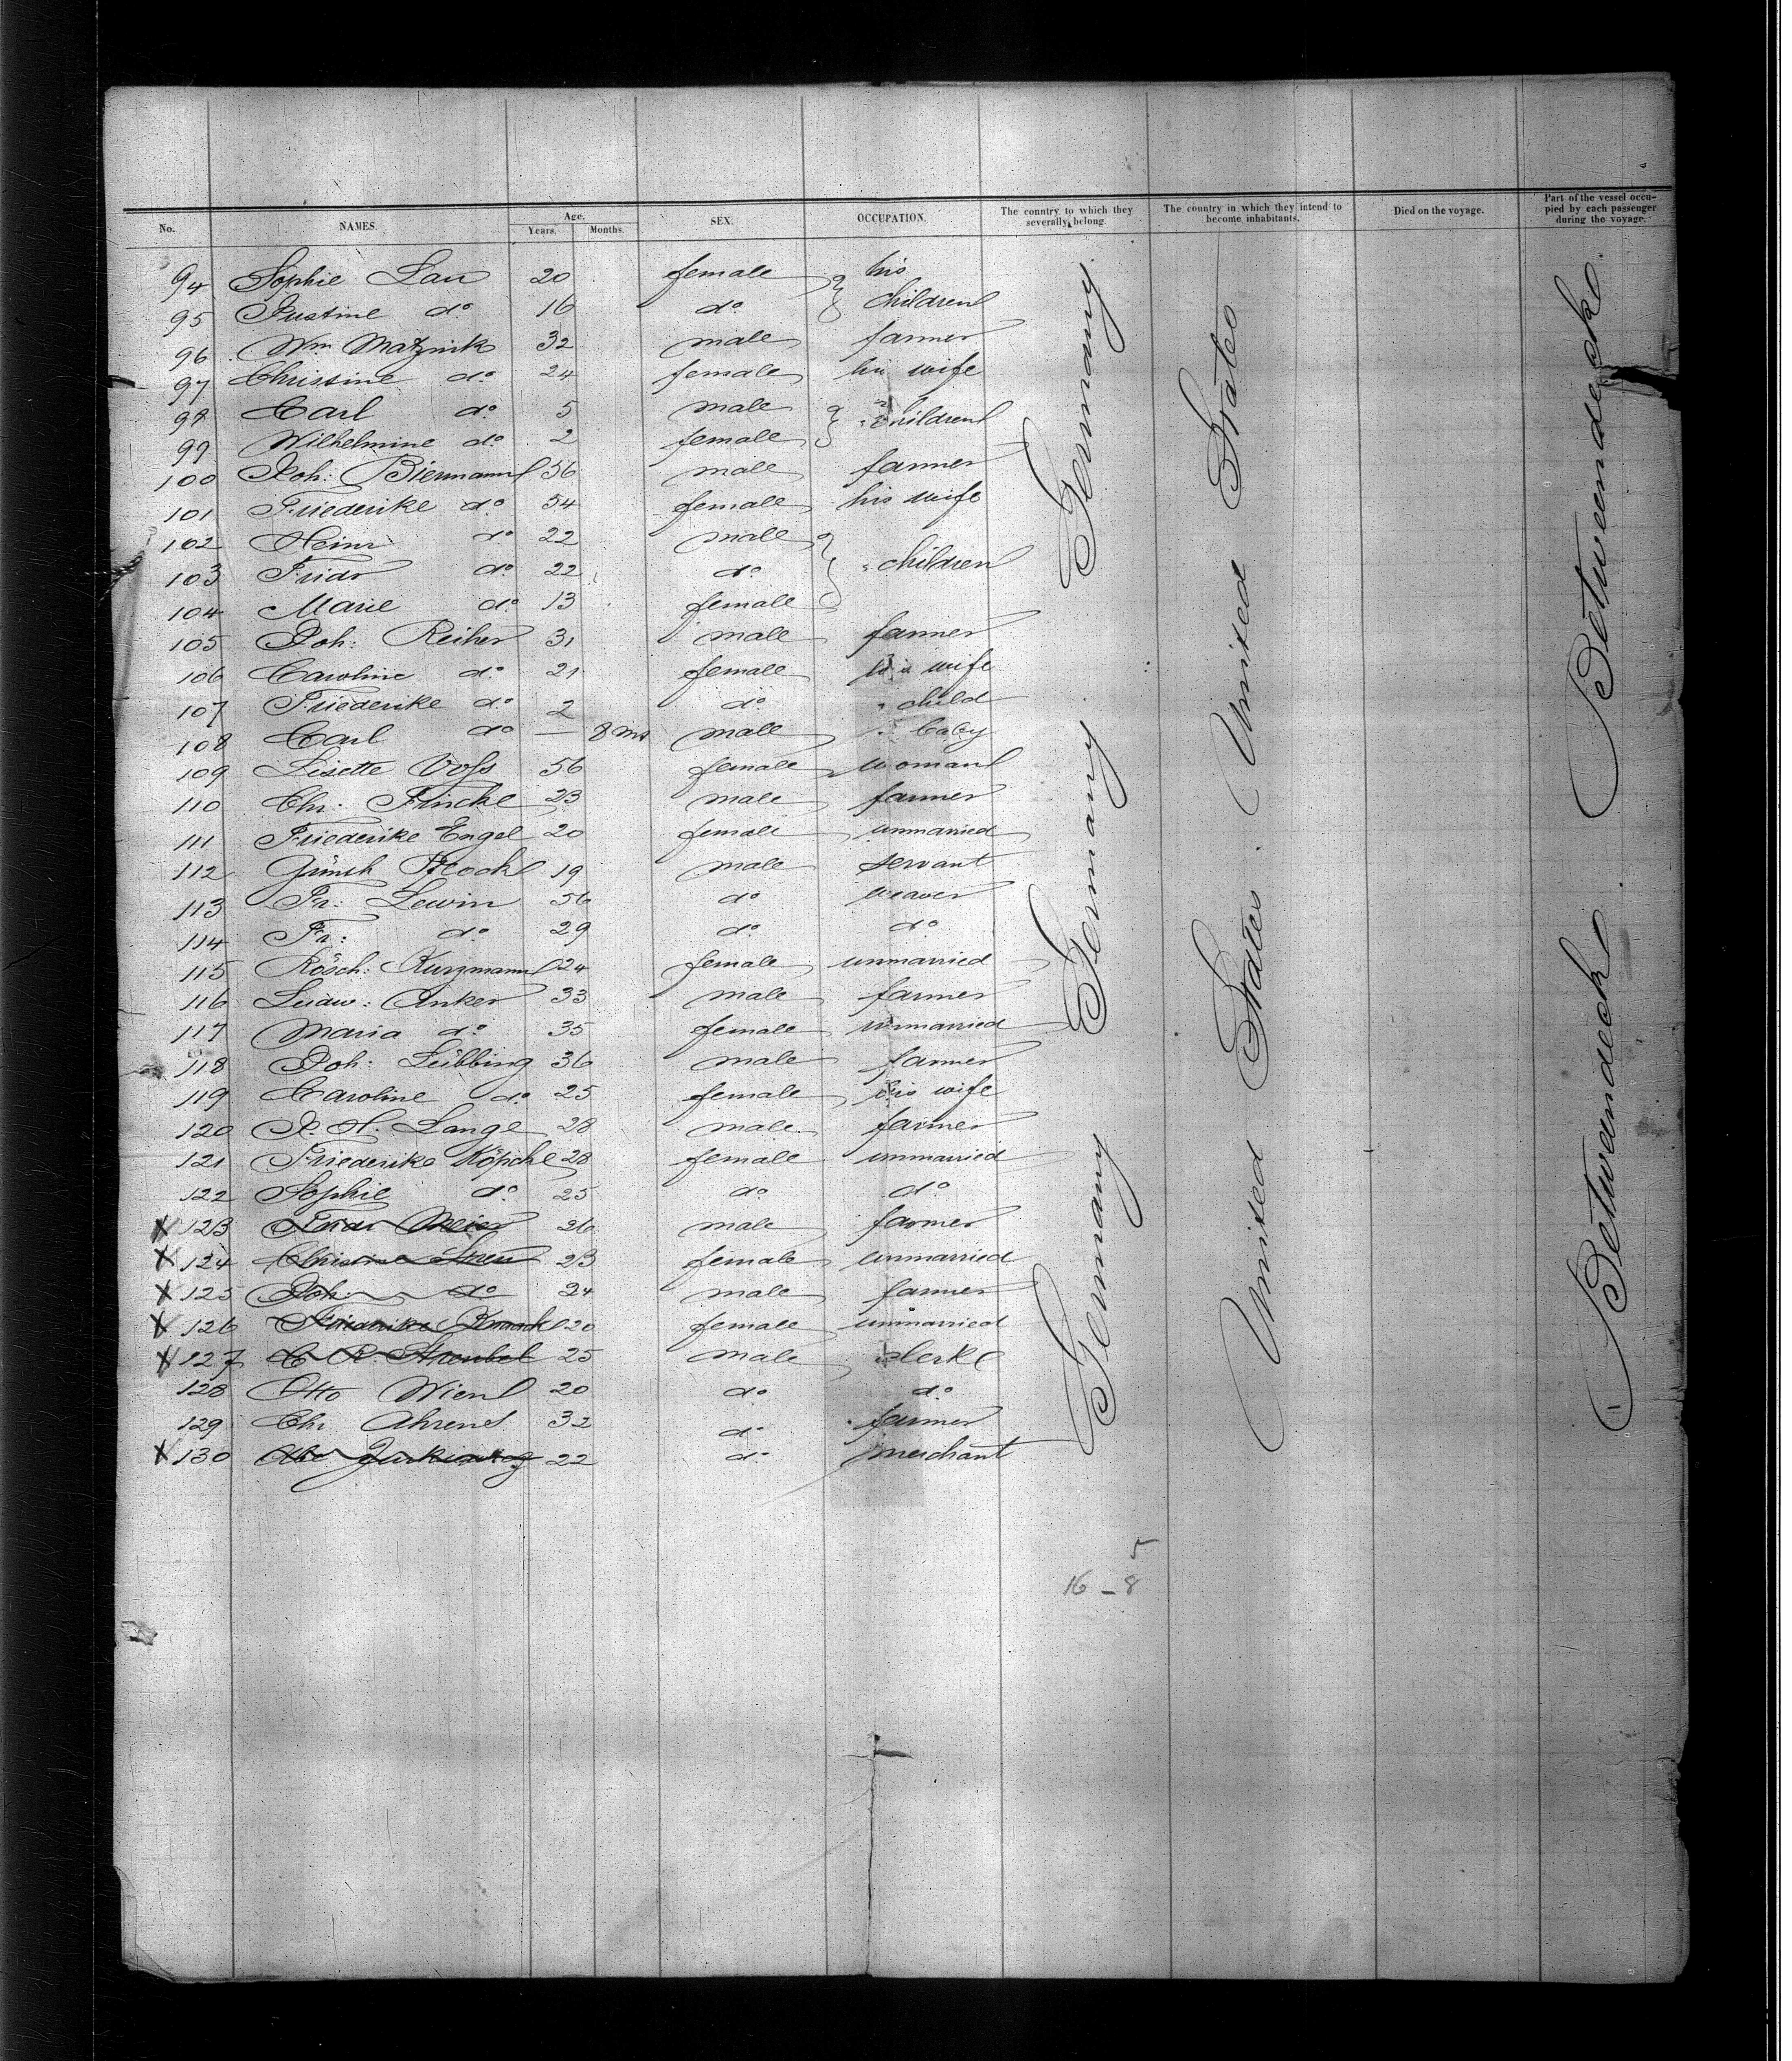 No. NAMES. Age. Years. Months. SEX. OCCUPATION. The country to which they severally belong. The country in which they intend to become inhabitants. Died on the voyage. Part of the vessel occupied by each passenger during the voyage.
94 Sophie Lau 20 female his
95 Justine do 16 do children
96 Wm Matzink 32 male farmer
97 Christine do 24 female his wife
98 Carl do 5 male
99 Wilhelmine do 2 female " children
100 Joh: Biermann 56 male farmer
101 Friederike do 54 female his wife
102 Heinr do 22 male
103 Fridr do 22 do " children
104 Marie do 13 female
105 Joh: Reiher 31 male farmer
106 Caroline do 21 female his wife
107 Friederike do 2 do " child
108 Carl do — 8 ms male " baby
109 Lisette Voss 56 female woman
110 Chr: Fincke 23 male farmer
111 Friederike Engel 20 female unmarried
112 19 male servant
113 Fr: Lewin 56 do weaver
114 Fr: do 29 do do
115 Rösch: Kurzmann 24 female unmarried
116 Ludw: Anker 33 male farmer
117 Maria do 35 female unmarried
118 Joh: Lübbing 36 male farmer
119 Caroline do 25 female his wife
120 J. H. Lange 28 male farmer
121 Friederike Köpcke 28 female unmarried
122 Sophie do 25 do do
X 123 Fridr Meier 26 male farmer
X 124 Christine 23 female unmarried
X 125 Joh: do 24 male farmer
X 126 Friederike 20 female unmarried
X 127 C. R. 25 male clerk
128 Otto Wien 20 do do
129 Chr Ahrens 32 do farmer
X 130 22 do merchant
Germany Germany Germany Germany
United States United States
Betweendeck Betweendeck
5
16 – 8